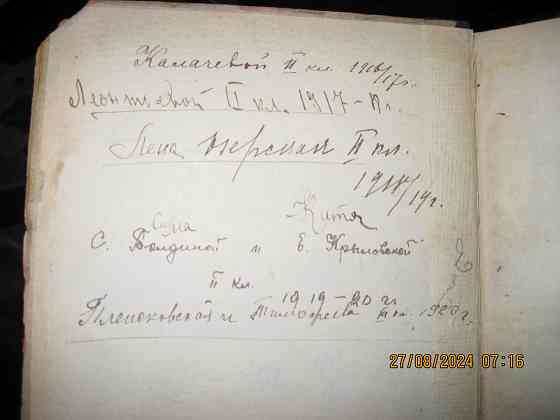 Калачевой II кл. 1916/17 г.
Леонтьевой II кл. 1917-18 г.
Лена Озерская II кл.
1918/19 г.
Катя
С. Болдиной и Е. Крыловской
II кл.
1919-20 г.
и Тимофеева II кл. 1920 г.
27/08/2024 07:16